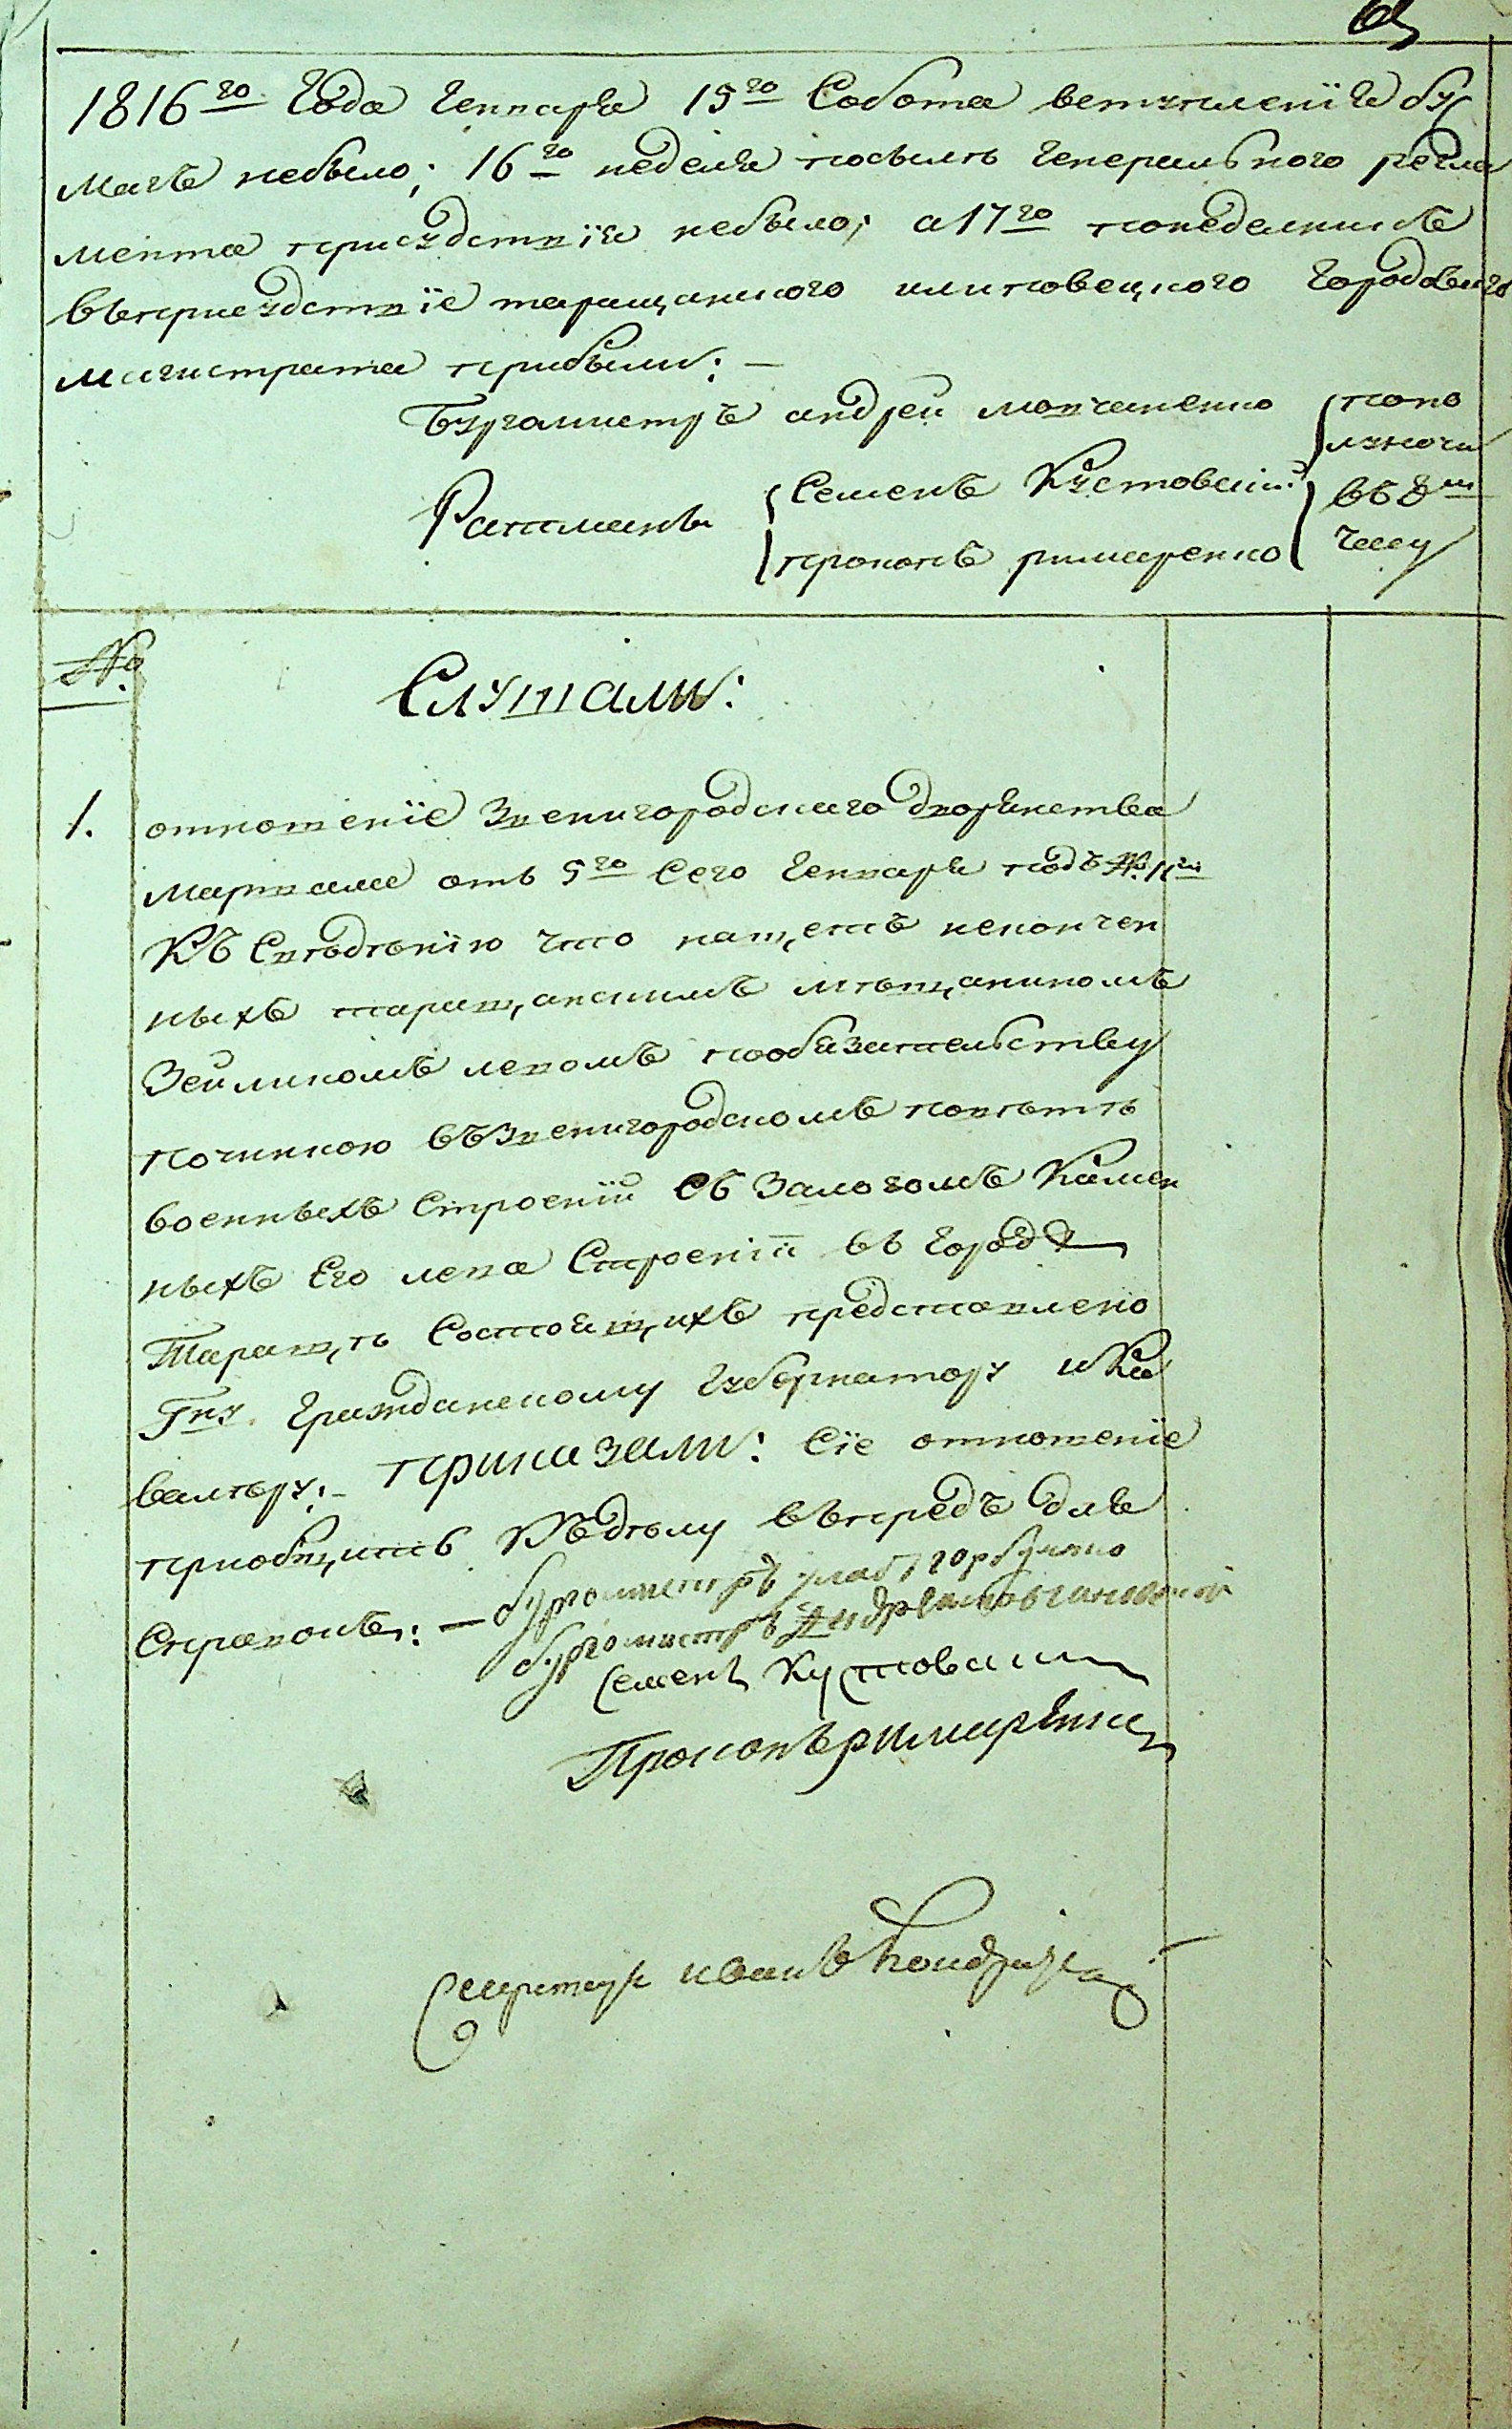 1816го Года Генваря 15го Собота вступленія бу
магъ небыло; 16го неделя посилѣ Генерального регла
мента присудствія небыло; а 17го понеделникъ
въприсудствіе таращанского илиповецкого Городового
магистрата прибыли: —
Бургомистръ андрей мовчаненко
попо
луночи
Ратманы
Семенъ Кустовскій
прокопъ римаренко
въ 8м
часу
№
Слушали:
1. отношеніе Звенигородскаго дворянства
маршала отъ 5го Сего Генваря подъ №
Къ Свѣдѣнію что нащетъ некончен
ныхъ таращанскимъ мѣщаниномъ
Зейликомъ левомъ пообязательству
починкою въЗвенигородскомъ повѣтѣ
военныхъ Строеній съ Залогомъ Камен
ныхъ Его лева Строеній въ Городѣ
Таращѣ Состоящихъ представлено
Гну Гражданскому Губернатору иКа
валѣру: — приказали: Сіе отношеніе
приобщить Къдѣлу въпредъ для
Справокъ: — бургомистръ горбулко
бургомистръ Андрей
Семенъ Кустовскій
Прокопъ римаренко
Секретарь иванъ